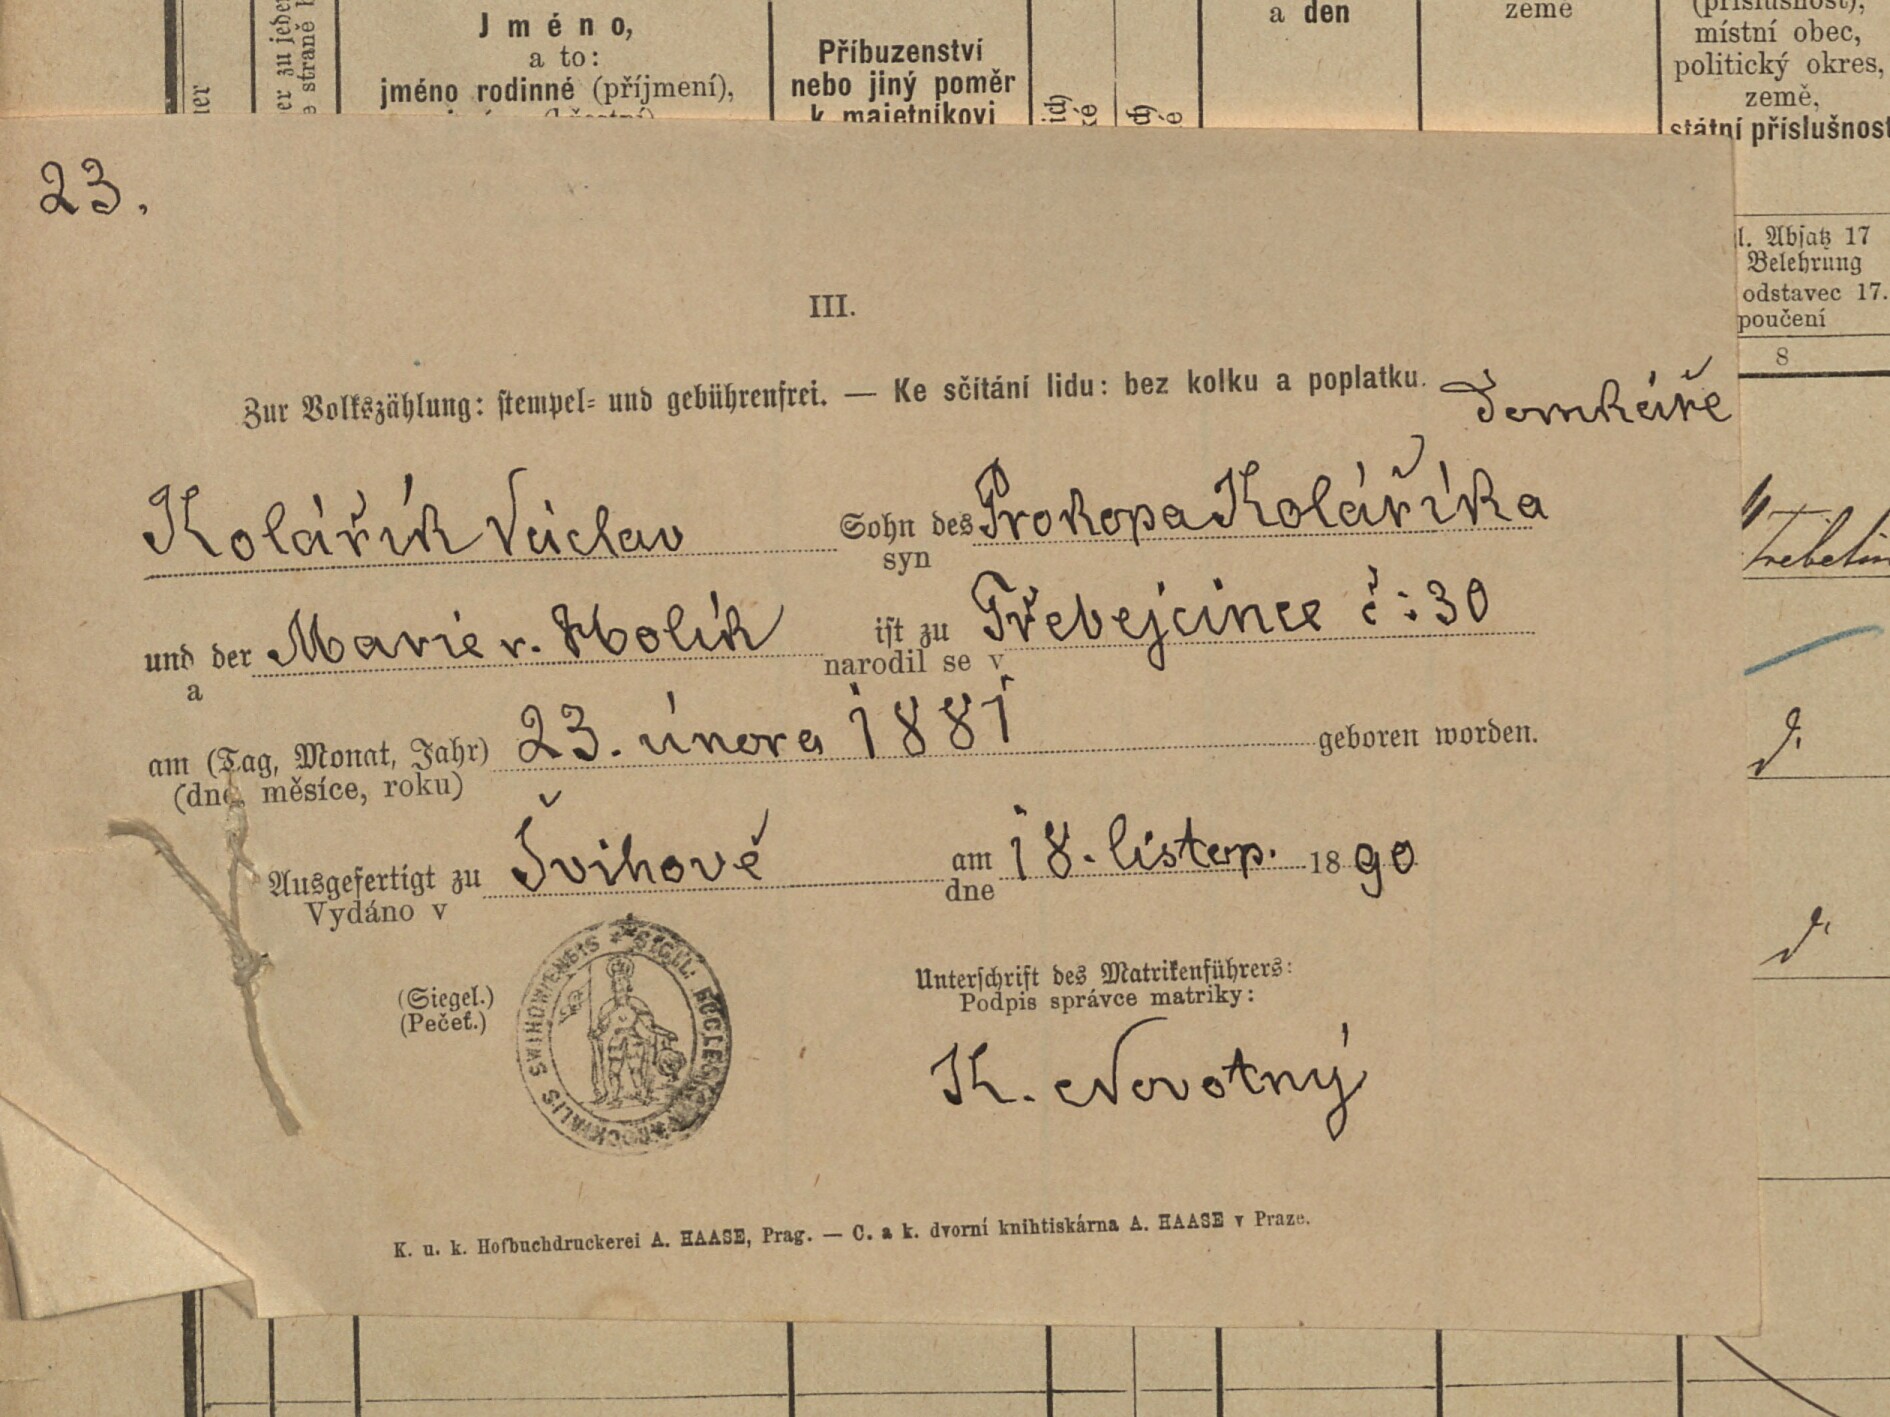 J m é n o,
a to:
jméno rodinné (příjmení),
Příbuzenství
nebo jiný poměr
k majetníkovi
a den
země
(příslušnost),
místní obec,
politický okres,
země,
státní příslušnost
23.
l. Absatz 17
Belehrung
odstavec 17.
poučení
8
III.
Zur Volkszählung: stempel- und gebührenfrei. — Ke sčítání lidu: bez kolku a poplatku.
Domkáře
Kolářík Václav Sohn des Prokopa Koláříka
syn
und der Marie r. Holík ist zu Třebejcince č: 30
a narodil se v
am (Tag, Monat, Jahr) 23. února 1881 geboren worden.
(dne, měsíce, roku)
Ausgefertigt zu Švihově am 18. listop. 1890
Vydáno v dne
(Siegel.)
(Pečeť.)
SIGIL. ECCLESIAE SWIHOWIENSIS
Unterschrift des Matrikenführers:
Podpis správce matriky:
K. Novotný
K. u. k. Hofbuchdruckerei A. HAASE, Prag. — C. a k. dvorní knihtiskárna A. HAASE v Praze.